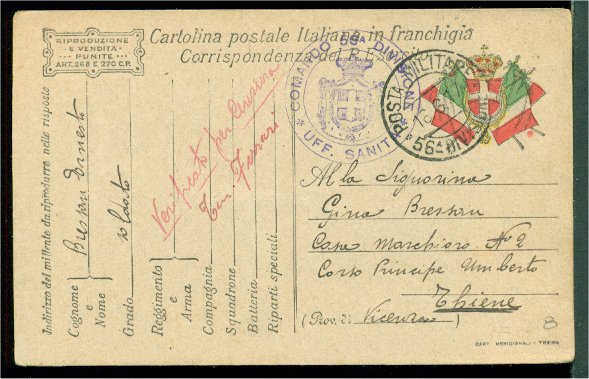 RIPRODUZIONE
E VENDITA
PUNITE
ART. 268 E 270 C.P.
Cartolina postale Italiana in franchigia
Corrispondenza del R. Esercito
COMANDO 56A DIVISIONE
* UFF. SANITÀ *
POSTA MILITARE
* 56A DIVISIONE *
Indirizzo del mittente da riprodurre nelle risposte
Cognome e Nome
Bressan Ernesto
Grado
soldato
Reggimento e Arma
Compagnia
Squadrone
Batteria
Riparti speciali
Verificato per censura
Ten. Furari
Alla Signorina
Gina Bressan
Casa Marchioro No 2
Corso Principe Umberto
Thiene
(Prov. di Vicenza)
8
CART. MERIDIONALI - TORINO